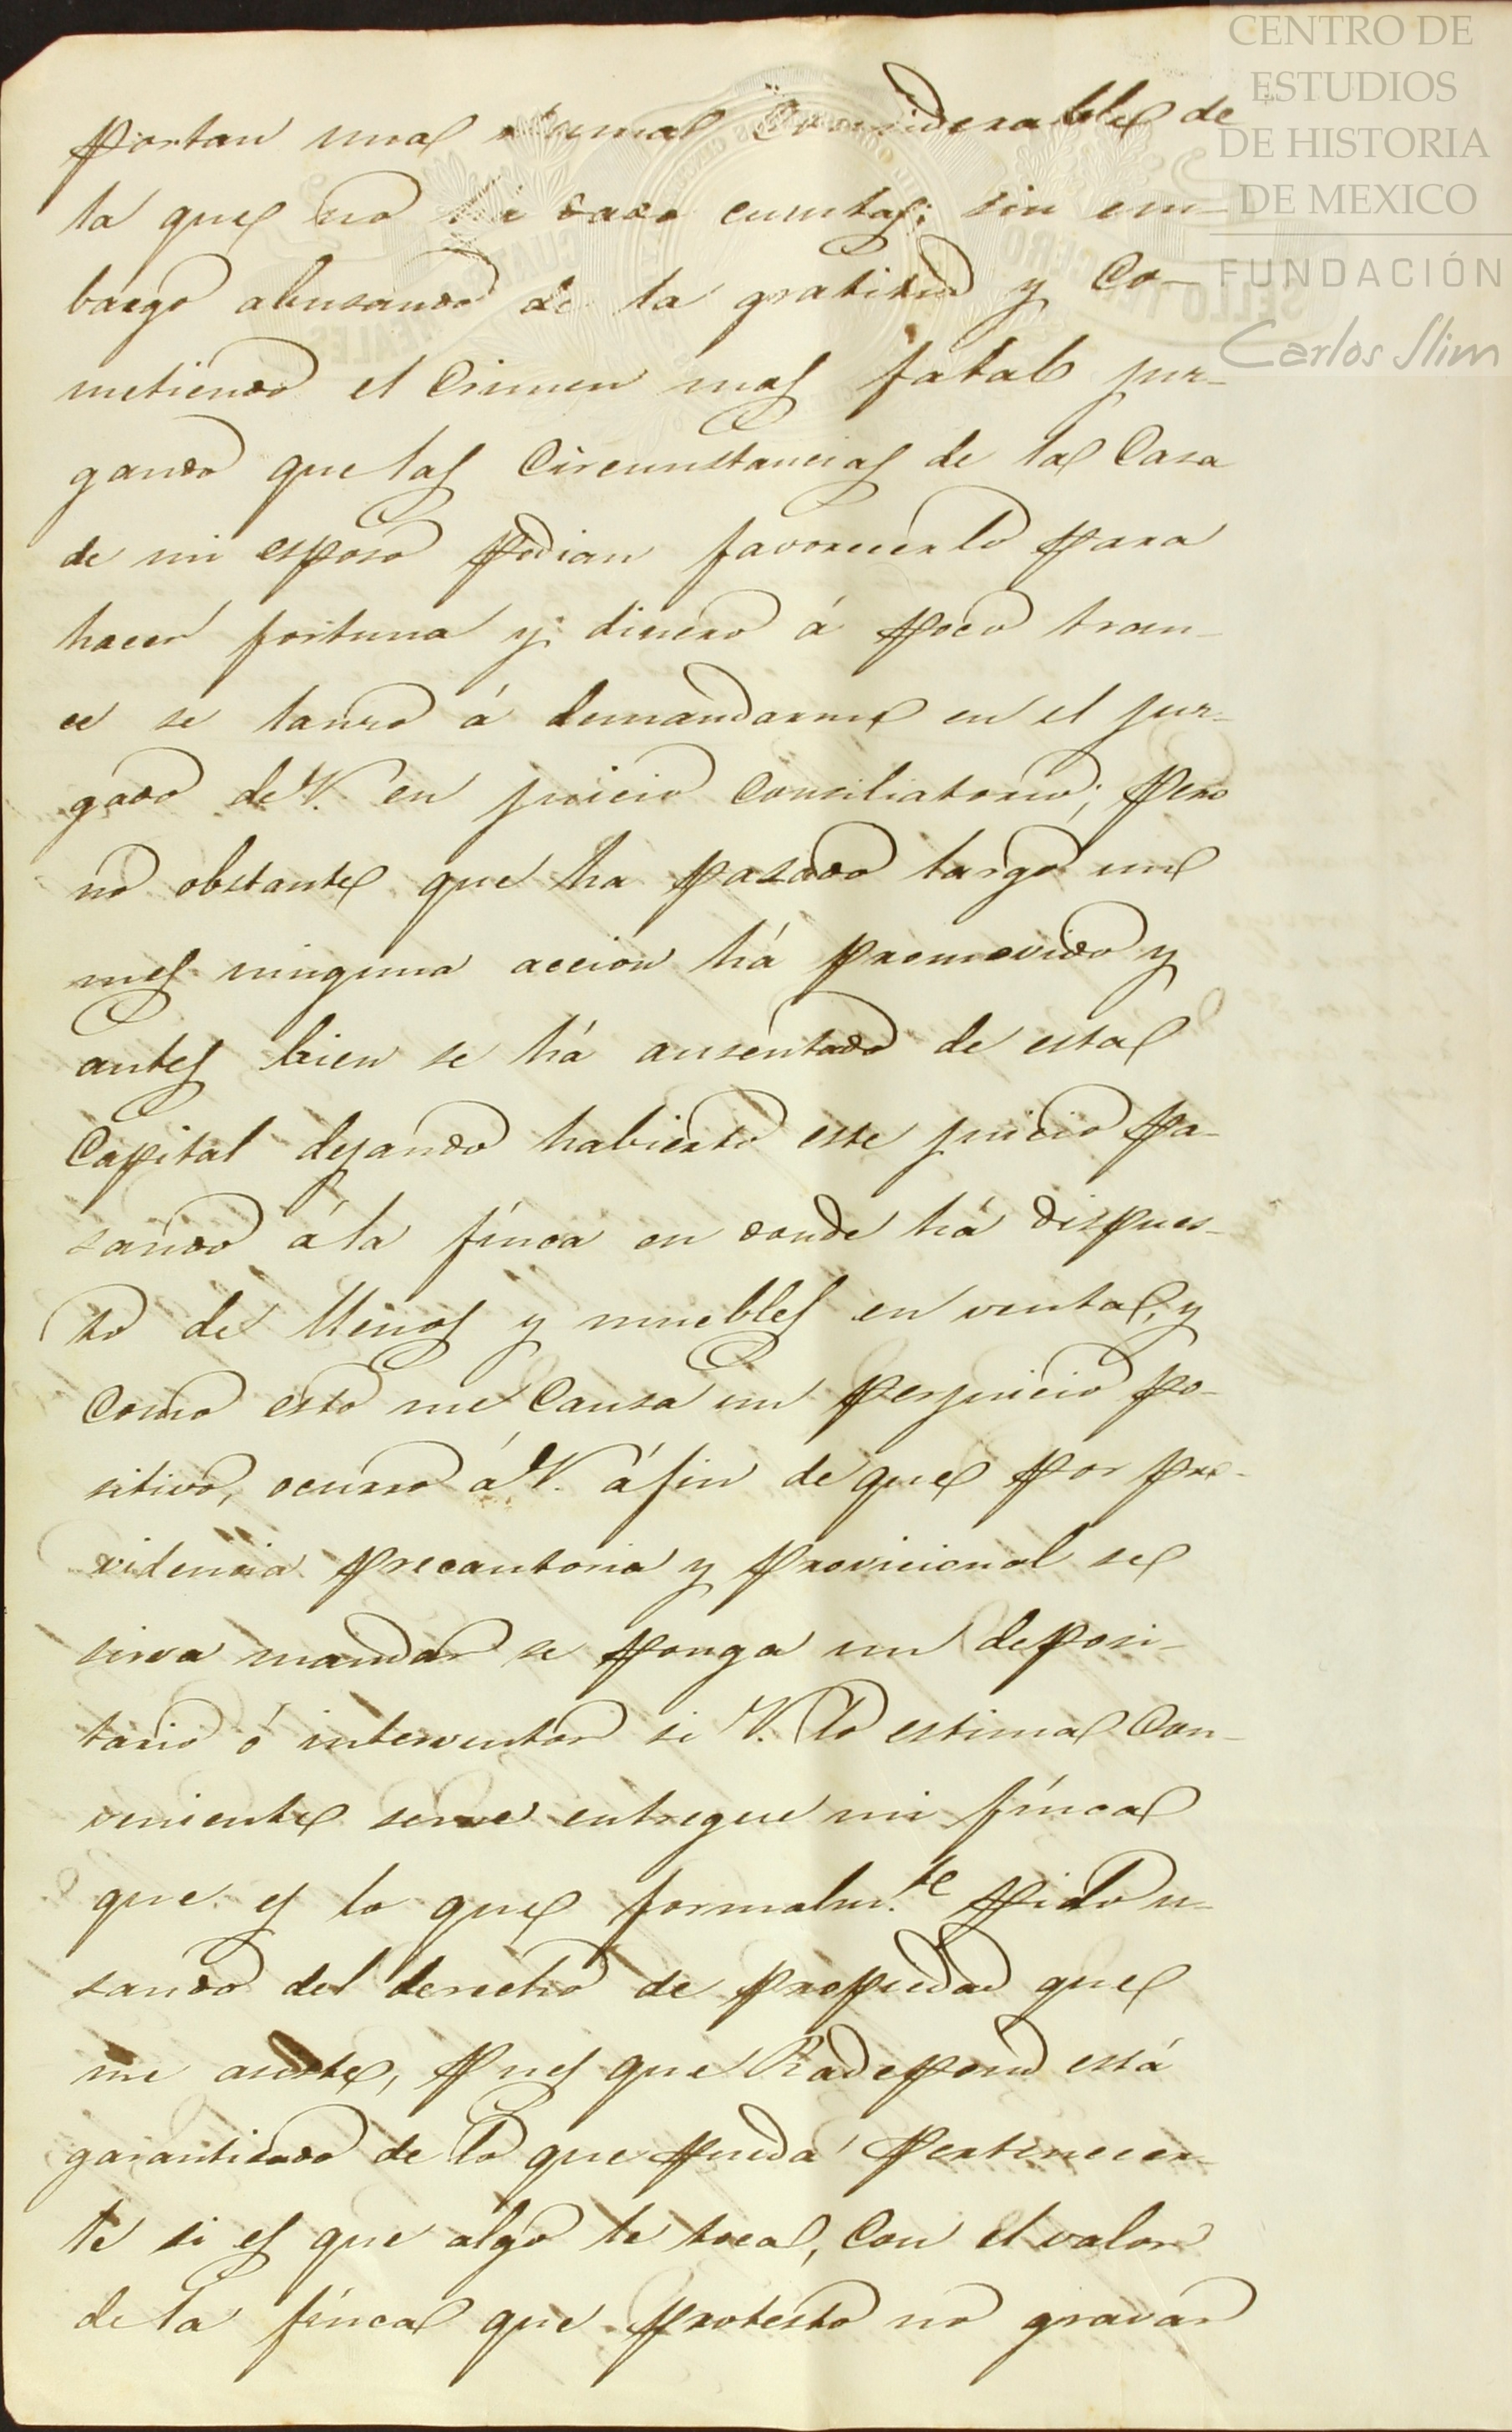 CENTRO DE
ESTUDIOS
DE HISTORIA
DE MEXICO
FUNDACIÓN
Carlos Slim
portan una suma considerable de
la que no há dado cuenta; sin em-
bargo abusando de la gratitud y co-
metiendo el crimen mas fatal juz-
gando que las circunstancias de la casa
de mi esposo podian favorecerlo para
hacer fortuna y dinero á poco tran-
ce se lanzo á demandarme en el juz-
gado de V. en juicio consiliatorio; pero
no obstante que ha pasado largo un
mes ninguna acción há promovido y
antes bien se há ausentado de esta
Capital dejando habierto este juicio pa-
sando á la finca en donde há dispues-
to de llenos y muebles en venta, y
como esto me causa un perjuicio po-
sitivo, ocurro á V. á fin de que por pro-
videncia precautoria y provicional se
sirva mandar se ponga un deposi-
tario ó interventor si V. lo estima con-
veniente seme entregue mi finca
que es lo que formalm.te pido u-
sando del derecho de propiedad que
me asiste, pues que Radepond está
garantizado de lo que pueda pertenecer-
le si es que algo le toca, con el valor
de la finca que protesto no gravar